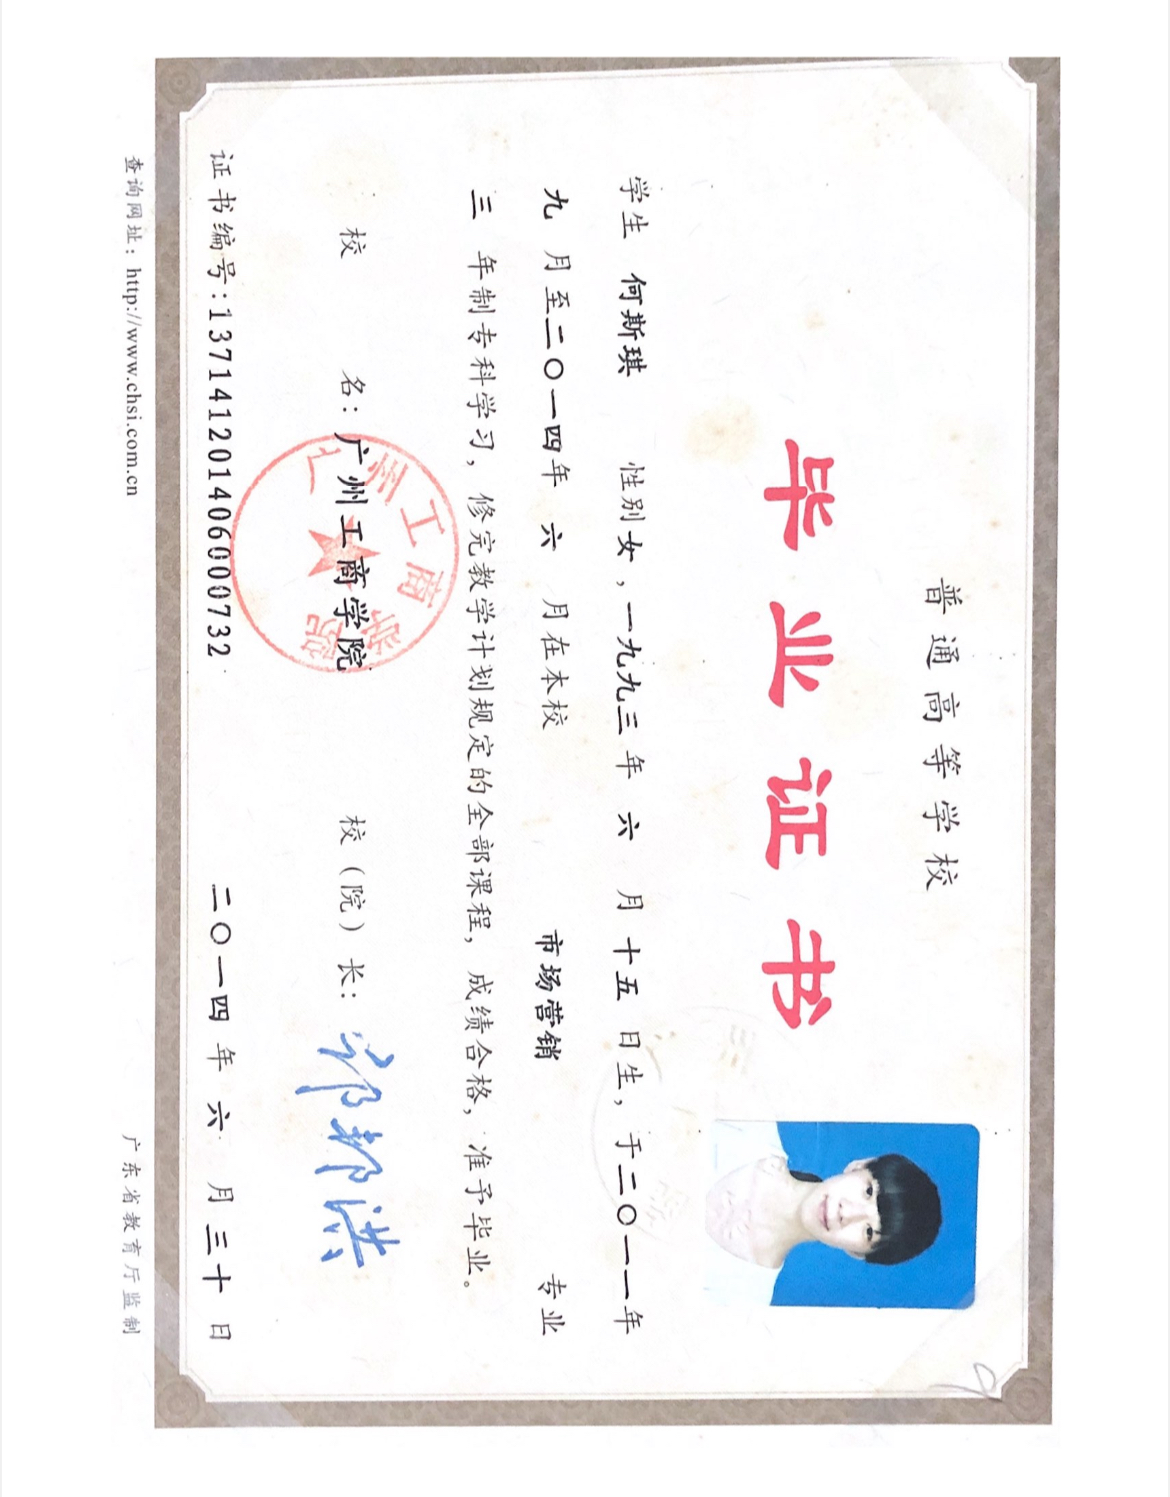 普通高等学校
毕业证书
学生 何斯琪 性别女，一九九三年 六 月十五日生，于二〇一一年
九 月至二〇一四年 六 月在本校 市场营销 专业
三 年制专科学习，修完教学计划规定的全部课程，成绩合格，准予毕业。
校 名：广州工商学院 校（院）长：
广州工商学院
证书编号：137141201406000732 二〇一四年 六 月三十日
查询网址：http://www.chsi.com.cn 广东省教育厅监制